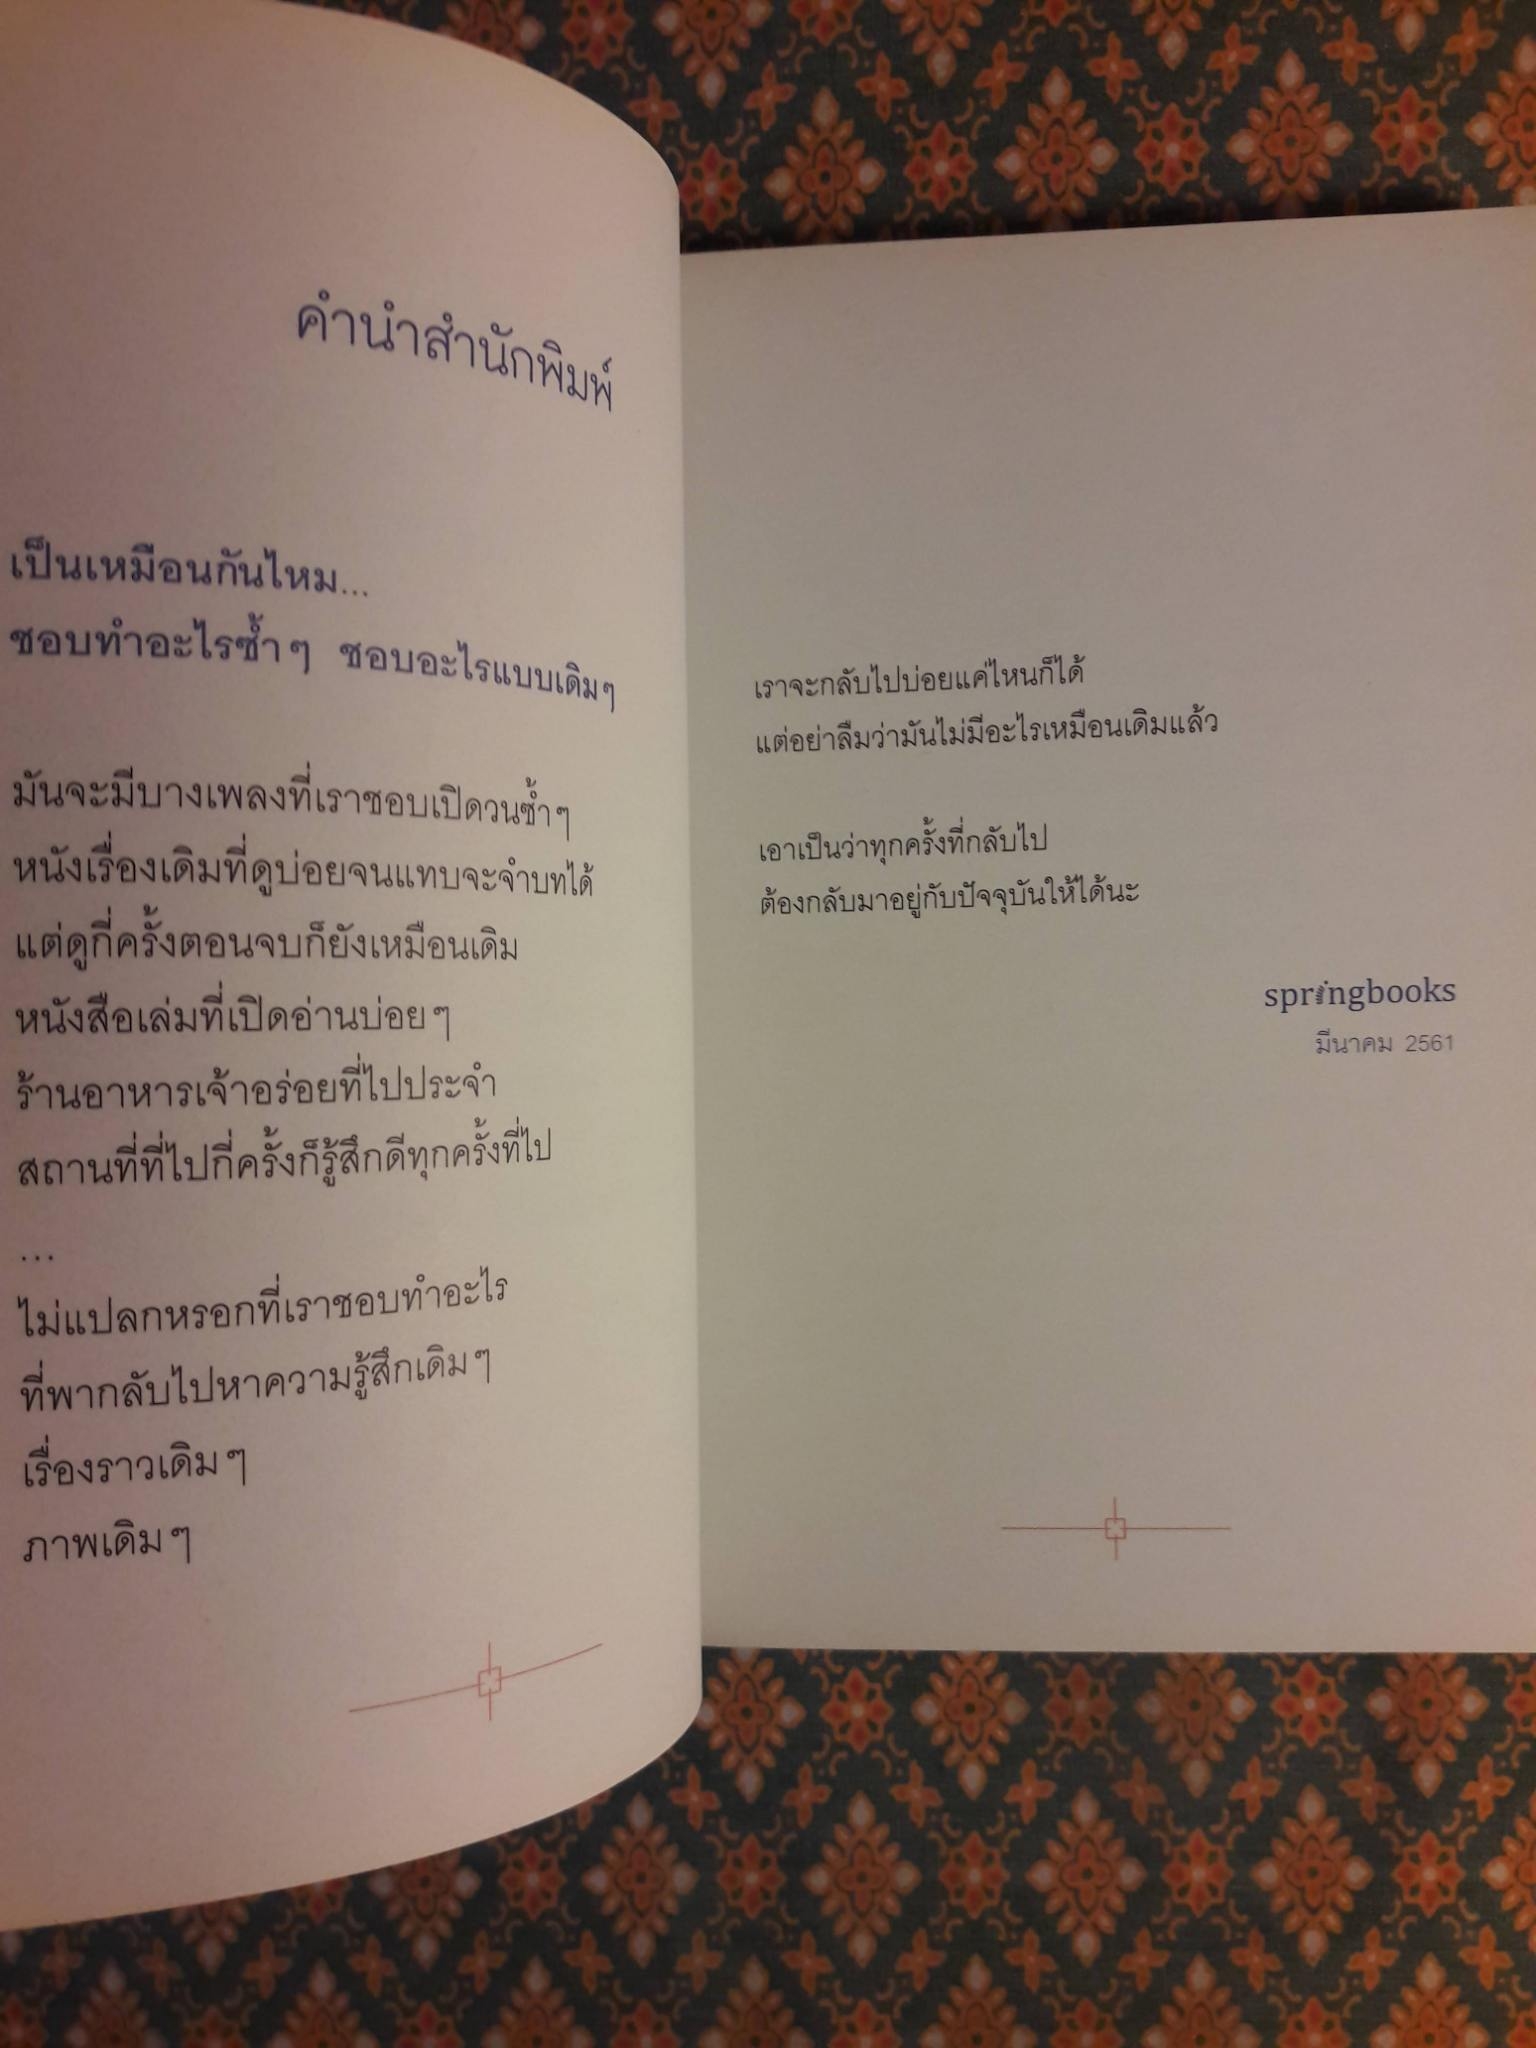 คำนำสำนักพิมพ์
เป็นเหมือนกันไหม...
ชอบทำอะไรซ้ำๆ ชอบอะไรแบบเดิมๆ
มันจะมีบางเพลงที่เราชอบเปิดวนซ้ำๆ
หนังเรื่องเดิมที่ดูบ่อยจนแทบจะจำบทได้
แต่ดูกี่ครั้งตอนจบก็ยังเหมือนเดิม
หนังสือเล่มที่เปิดอ่านบ่อยๆ
ร้านอาหารเจ้าอร่อยที่ไปประจำ
สถานที่ที่ไปกี่ครั้งก็รู้สึกดีทุกครั้งที่ไป
...
ไม่แปลกหรอกที่เราชอบทำอะไร
ที่พากลับไปหาความรู้สึกเดิมๆ
เรื่องราวเดิมๆ
ภาพเดิมๆ
เราจะกลับไปบ่อยแค่ไหนก็ได้
แต่อย่าลืมว่ามันไม่มีอะไรเหมือนเดิมแล้ว
เอาเป็นว่าทุกครั้งที่กลับไป
ต้องกลับมาอยู่กับปัจจุบันให้ได้นะ
springbooks
มีนาคม 2561